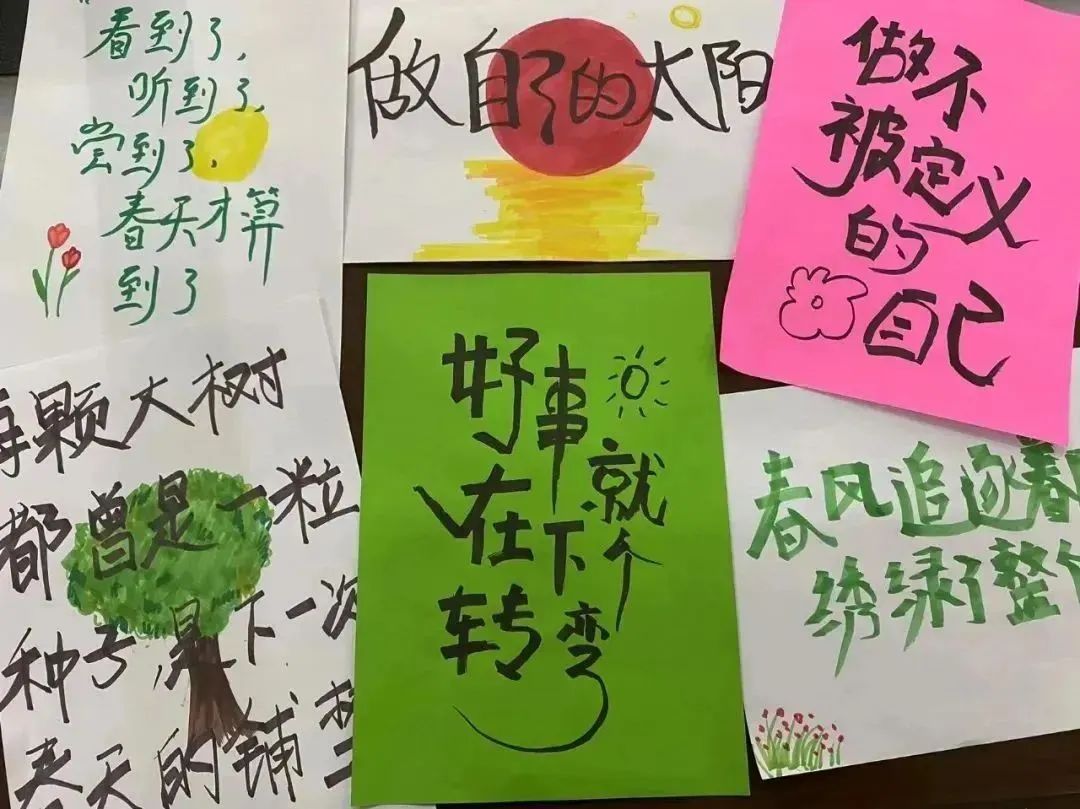 看到了,
听到了,
尝到了,
春天才算
到了
做自己的太阳
做不
被定义
的
自己
颗大树
都曾是一粒
种子,是下一次
春天的铺
好事就
在下个
转弯
春风追逐春
绣绿了整